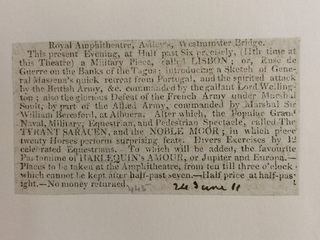 Royal Amphitheatre, Astley's, Westminster Bridge.
This present Evening, at Half past Six precisely, (11th time at
this Theatre) a Military Piece, called LISBON; or, Ruse de
Guerre on the Banks of the Tagus; introducing a Sketch of Gene-
ral Massena's quick retreat from Portugal, and the spirited attack
by the British Army, &c. commanded by the gallant Lord Welling-
ton; also the glorious Defeat of the French Army under Marshal
Soult, by part of the Allied Army, commanded by Marshal Sir
William Beresford, at Albuera. After which, the Popular Grand
Naval, Military, Equestrian, and Pedestrian Spectacle, called The
TYRANT SARACEN, and the NOBLE MOOR; in which piece
twenty Horses perform surprising feats. Divers Exercises by 12
celebrated Equestrians. To which will be added, the favourite
Pantomime of HARLEQUIN'S AMOUR, or Jupiter and Europa.—
Places to be taken at the Amphitheatre, from ten till three o'clock,
which cannot be kept after half-past seven.—Half price at half-pas
ight.—No money returned.
24 June 11